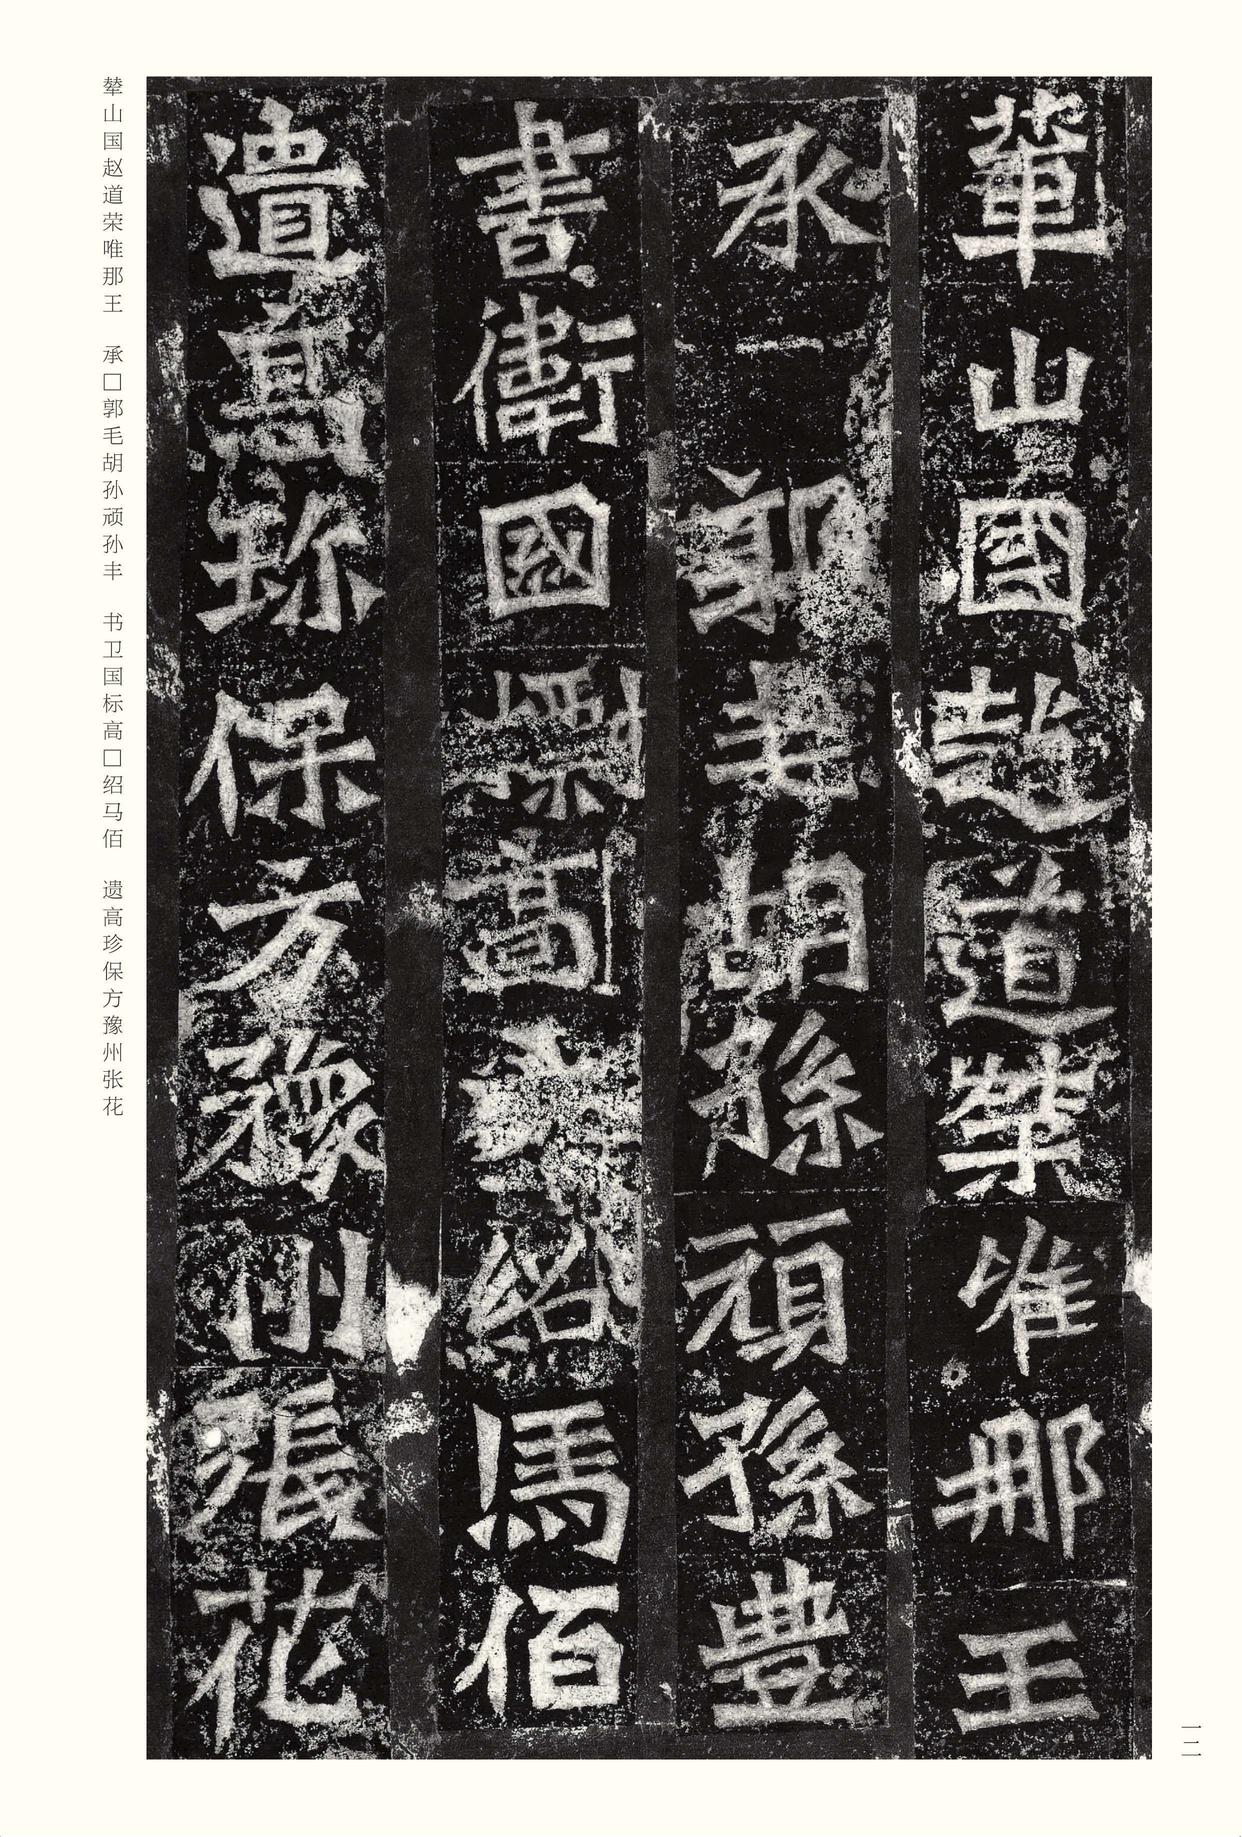 輦山國趙道榮唯那王
承郭毛胡孫頑孫豐
書衛國標高紹馬佰
遺高珎保方豫州張花
輂山国赵道荣唯那王　承□郭毛胡孙顽孙丰　书卫国标高□绍马佰　遗高珍保方豫州张花
一二